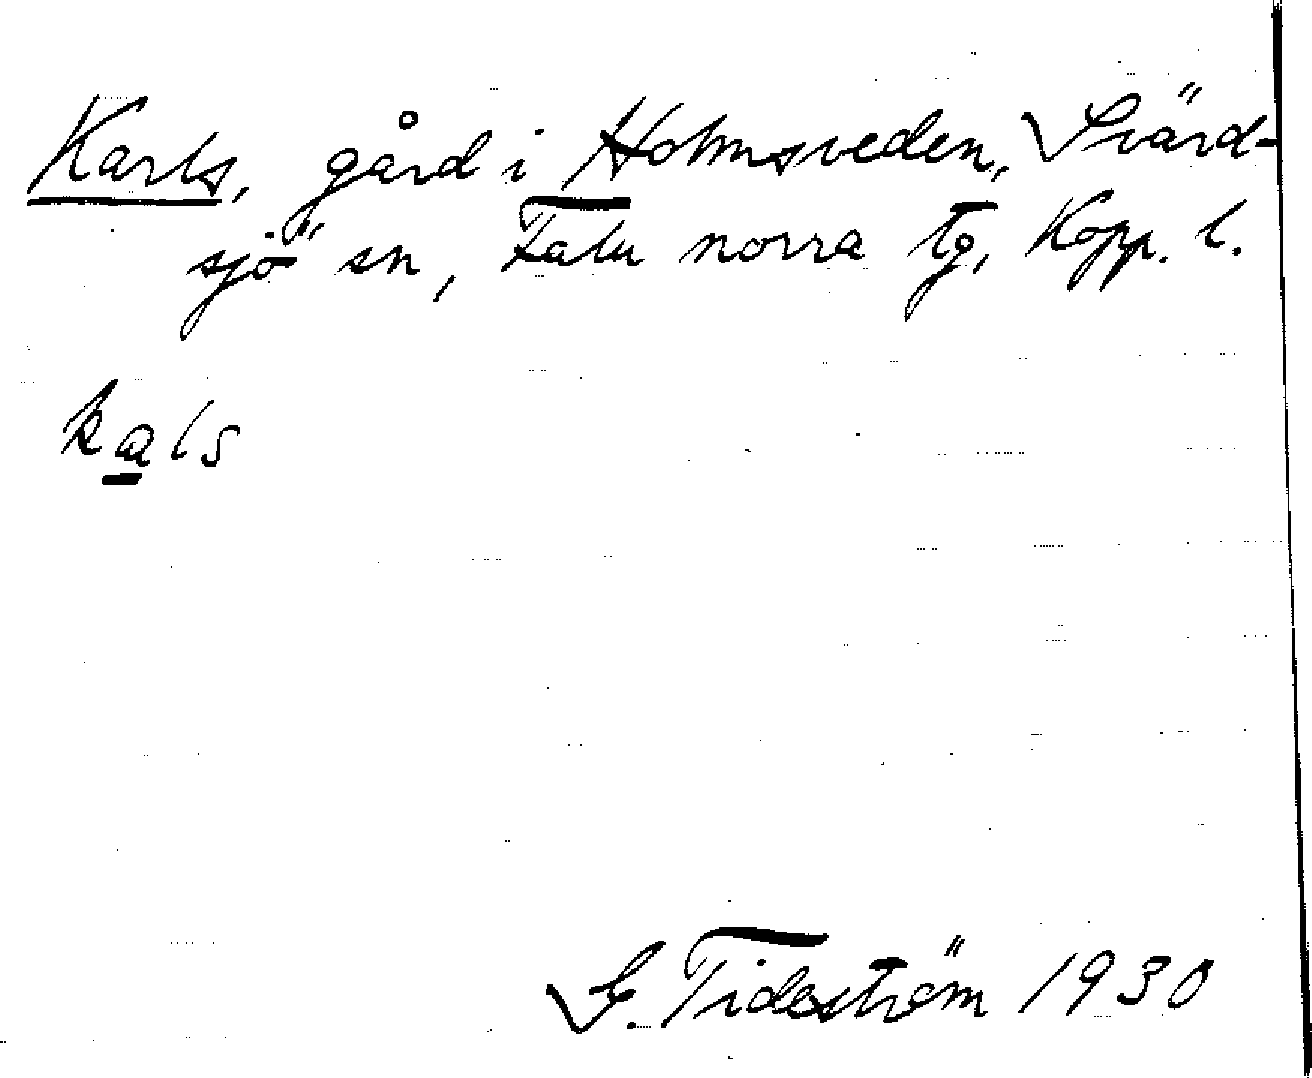 Karls, gård i Holmsveden, Svärd-
sjö sn, Falu norra tg, Kopp. l.
kals
G. Tideström 1930